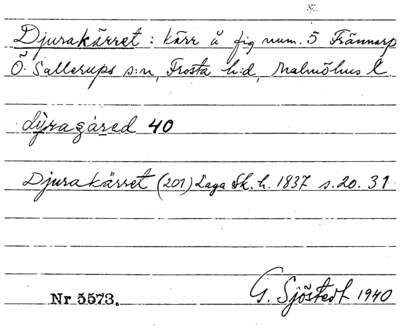 Djurakärret : kärr å fig num. 5 Frännarp
Ö. Sallerups s:n, Frosta h:d, Malmöhus L.
40
Djurakärret (201) Laga Sk. h. 1837 s. 20. 31
Nr 5573.
G. Sjöstedt 1940